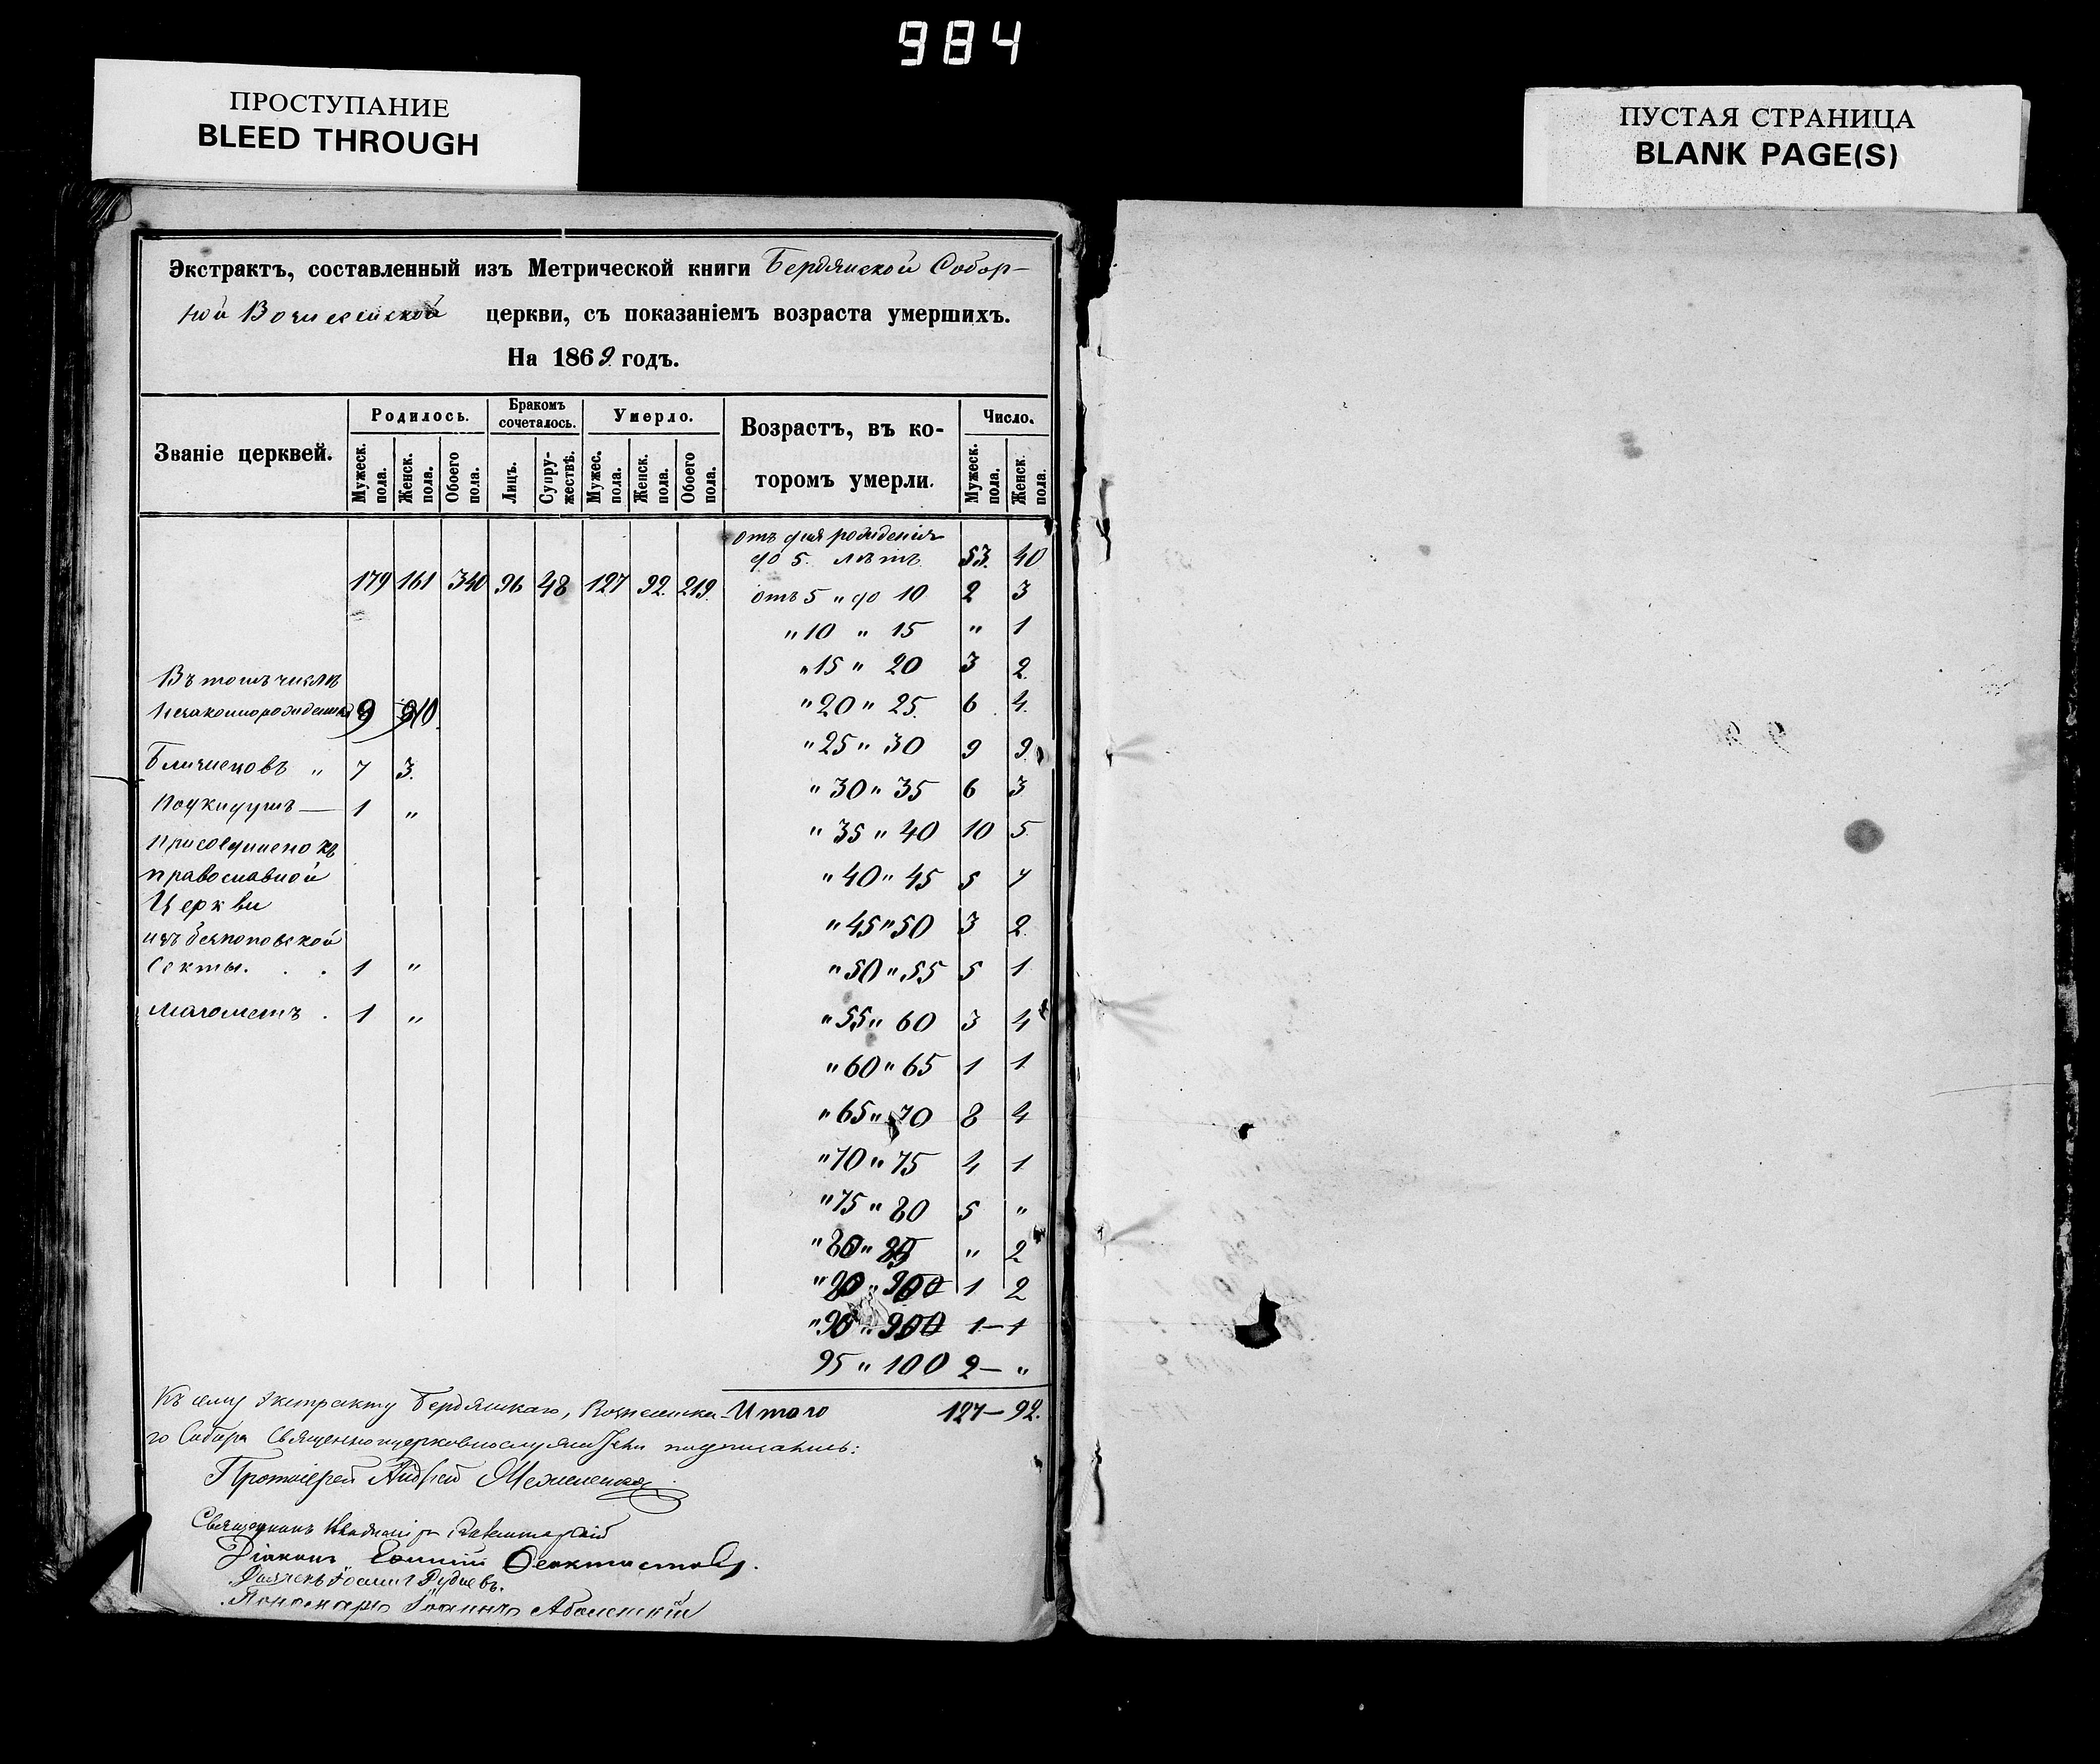 984
ПРОСТУПАНИЕ
BLEED THROUGH
ПУСТАЯ СТРАНИЦА
BLANK PAGE(S)
Экстрактъ, составленный изъ Метрической книги Бердянской Собор-
ной Вознесенской церкви, съ показаніемъ возраста умершихъ.
На 1869 годъ.
Званіе церквей.
Родилось.
Бракомъ сочеталось.
Умерло.
Возрастъ, въ ко-
торомъ умерли.
Число.
Мужеск. пола.
Женск. пола.
Обоего пола.
Лицъ.
Супру-жествъ.
Мужес. пола.
Женск. пола.
Обоего пола.
Мужеск. пола.
Женск. пола
179 161 340 96 48 127 92. 219.
отъ дня рожденія
до 5. лѣтъ 53. 40
отъ 5 " до 10 2 3
" 10 " 15 " 1
" 15 " 20 3 2.
" 20 " 25. 6 4.
" 25 " 30 9 9.
" 30 " 35 6 3
" 35 " 40 10 5.
" 40 " 45 5 7
" 45 " 50 3 2.
" 50 " 55 5 1
" 55 " 60 3 4
" 60 " 65 1 1
" 65 " 70 8 4
" 70 " 75 4 1
" 75 " 80 5 "
" 80 " 85 " 2
1 2
1 – 1
95 " 100 2 – "
Итого 127 – 92.
Въ томъ числѣ
незаконнорожденныхъ 9 10.
Близнецовъ " 7 3.
Подкидушъ — 1 "
присоединено къ
православной
Церкви
изъ безпоповской
секты. . . 1 "
Магометъ . 1 "
Къ сему экстракту Бердянскаго, Вознесенска-
го Собора Священноцерковнослужители подписались:
Протоіерей Андрей
Священникъ
Діаконъ Феоктистовъ.
Дьячекъ Рудневъ.
Пономарь Іоаннъ